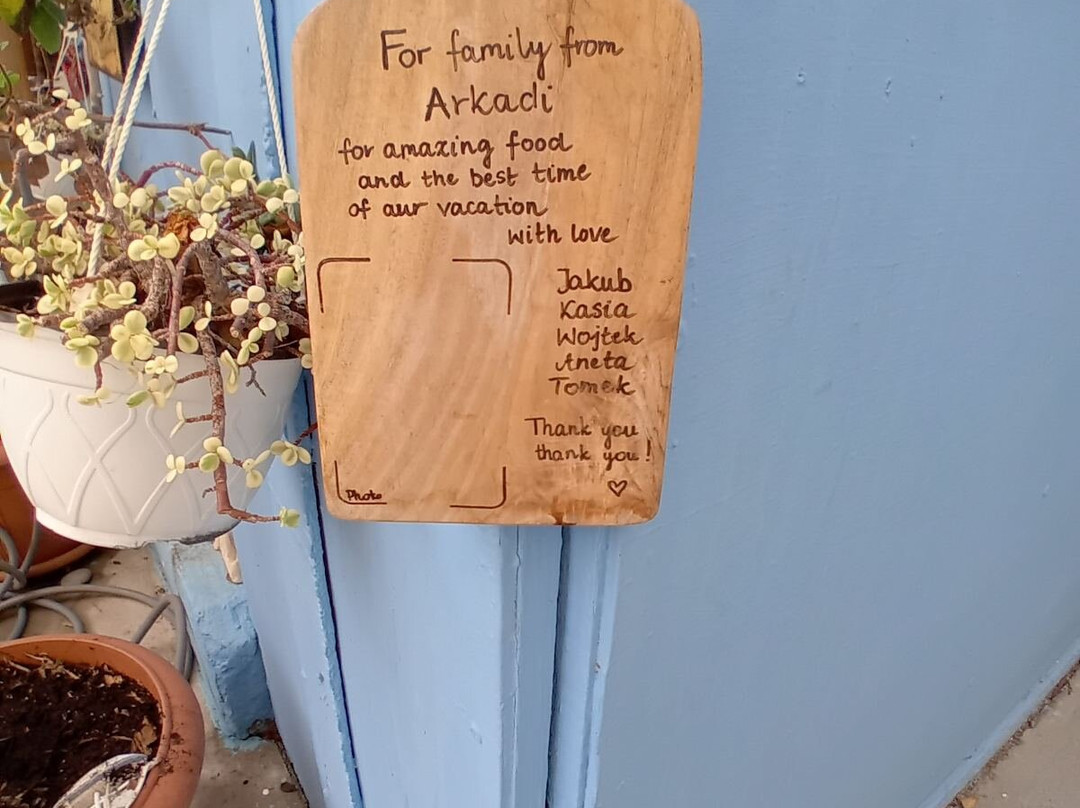 For family from
Arkadi
for amazing food
and the best time
of aur vacation
with love
Jakub
Kasia
Wojtek
Aneta
Tomek
Thank you
thank you!
Photo